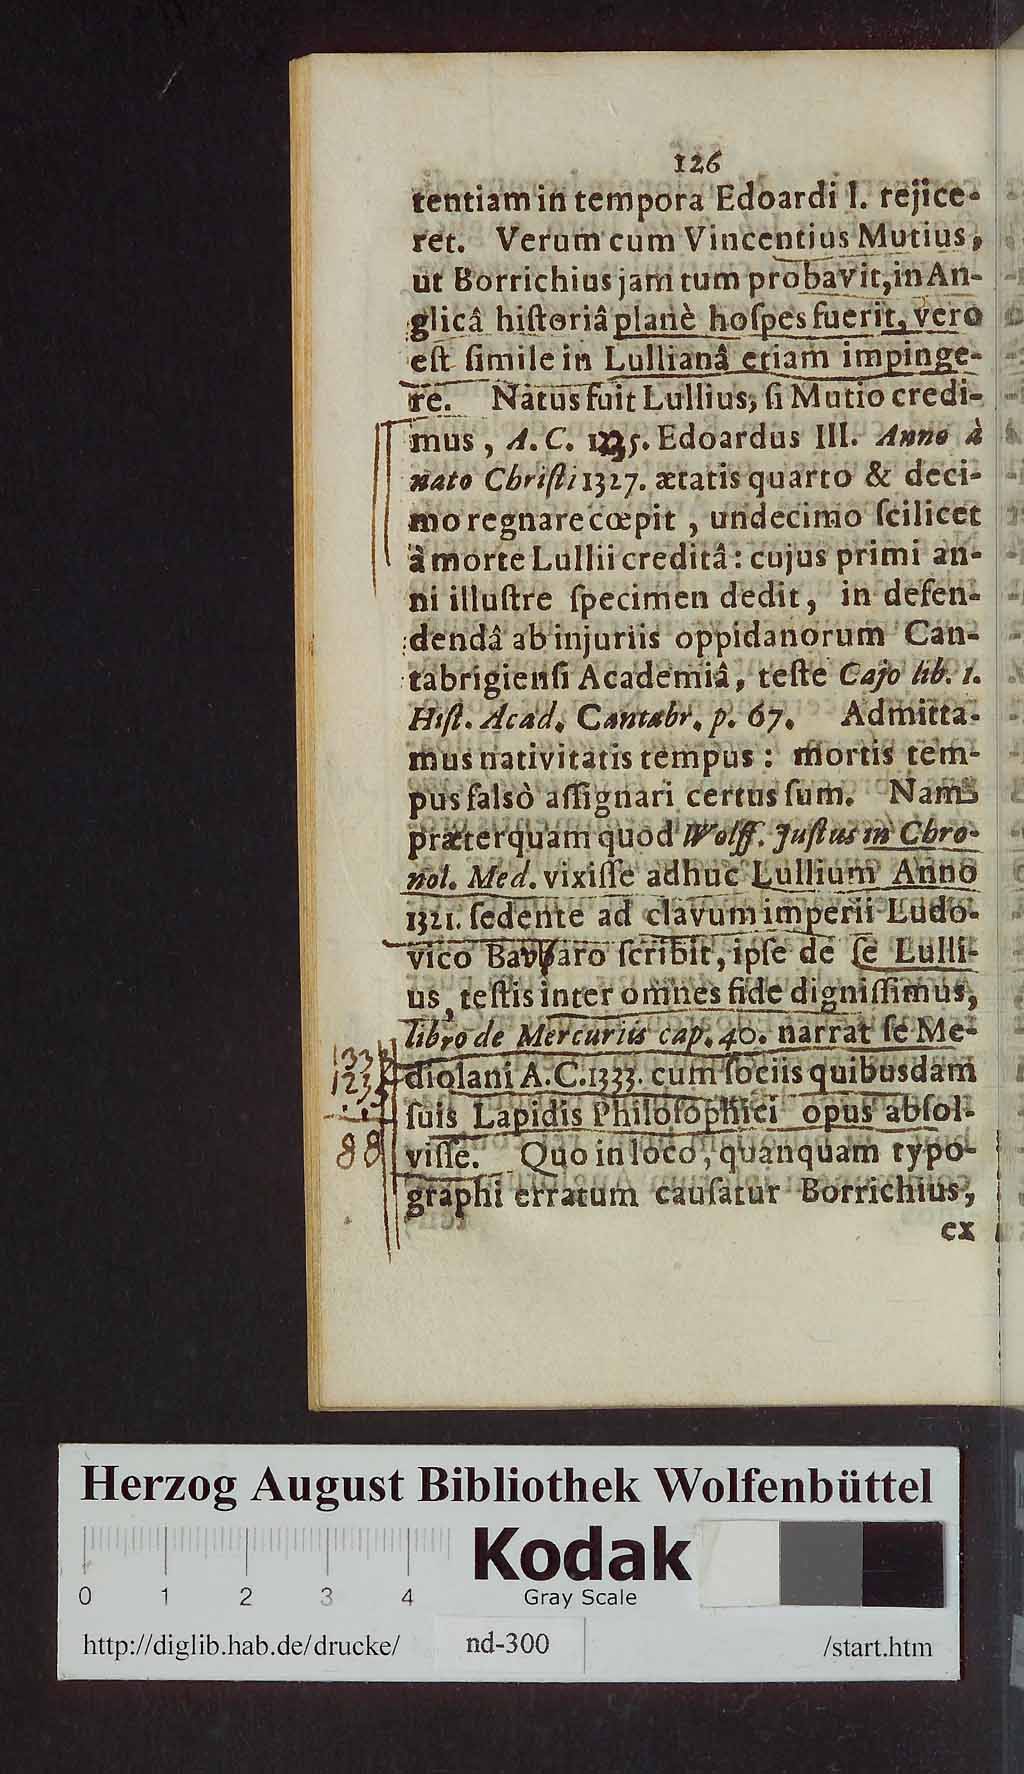 126
tentiam in tempora Edoardi I. rejice-
ret. Verum cum Vincentius Mutius,
ut Borrichius jam tum probavit, in An-
glicâ hiſtoriâ planè hoſpes fuerit, vero
eſt ſimile in Lullianâ etiam impinge-
re. Natus fuit Lullius, ſi Mutio credi-
mus, A.C. 1235. Edoardus III. Anno à
nato Chriſti 1327. ætatis quarto & deci-
mo regnare cœpit, undecimo ſcilicet
à morte Lullii creditâ: cujus primi an-
ni illuſtre ſpecimen dedit, in defen-
dendâ ab injuriis oppidanorum Can-
tabrigienſi Academiâ, teſte Cajo lib. 1.
Hiſt. Acad. Cantabr. p. 67. Admitta-
mus nativitatis tempus: mortis tem-
pus falsò aſſignari certus ſum. Nam
præterquam quod Wolff. Juſtus in Chro-
nol. Med. vixiſſe adhuc Lullium Anno
1321. ſedente ad clavum imperii Ludo-
vico Bavaro ſcribit, ipſe de ſe Lulli-
us, teſtis inter omnes fide digniſſimus,
libro de Mercuriis cap. 40. narrat ſe Me-
diolani A.C. 1333. cum ſociis quibusdam
ſuis Lapidis Philoſophici opus abſol-
viſſe. Quo in loco, quanquam typo-
graphi erratum cauſatur Borrichius,
ex
1235
88
Herzog August Bibliothek Wolfenbüttel
Kodak
Gray Scale
0 1 2 3 4
http://diglib.hab.de/drucke/ nd-300 /start.htm